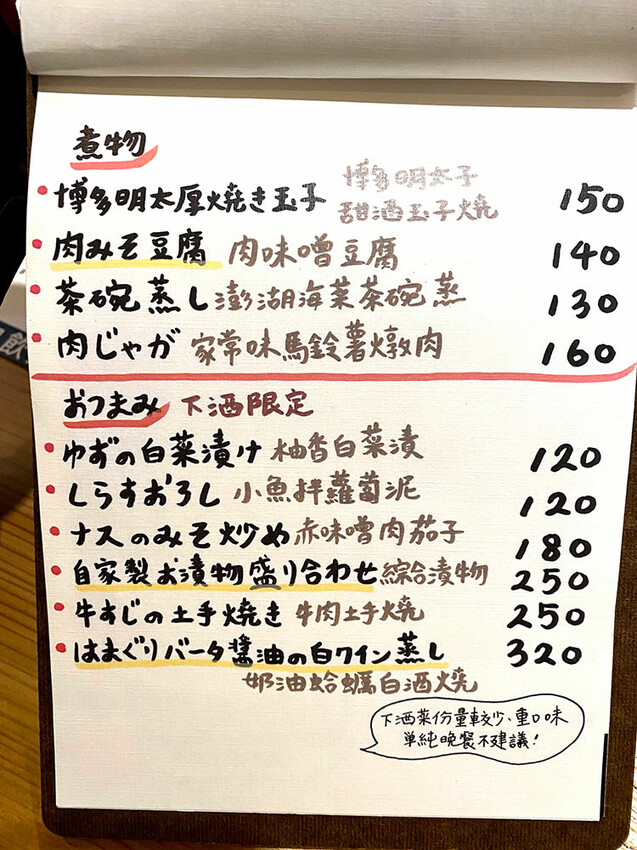 煮物
博多明太厚焼き玉子 博多明太子 甜酒玉子燒 150
肉みそ豆腐 肉味噌豆腐 140
茶碗蒸し 澎湖海菜茶碗蒸 130
肉じゃが 家常味馬鈴薯燉肉 160
おつまみ 下酒限定
ゆずの白菜漬け 柚香白菜漬 120
しらすおろし 小魚拌蘿蔔泥 120
ナスのみそ炒め 赤味噌肉茄子 180
自家製お漬物盛り合わせ 綜合漬物 250
牛すじの土手焼き 牛肉土手燒 250
はまぐりバータ醬油の白ワイン蒸し 320
奶油蛤蠣白酒燒
下酒菜份量較少、重口味
單純晚餐不建議!
飲